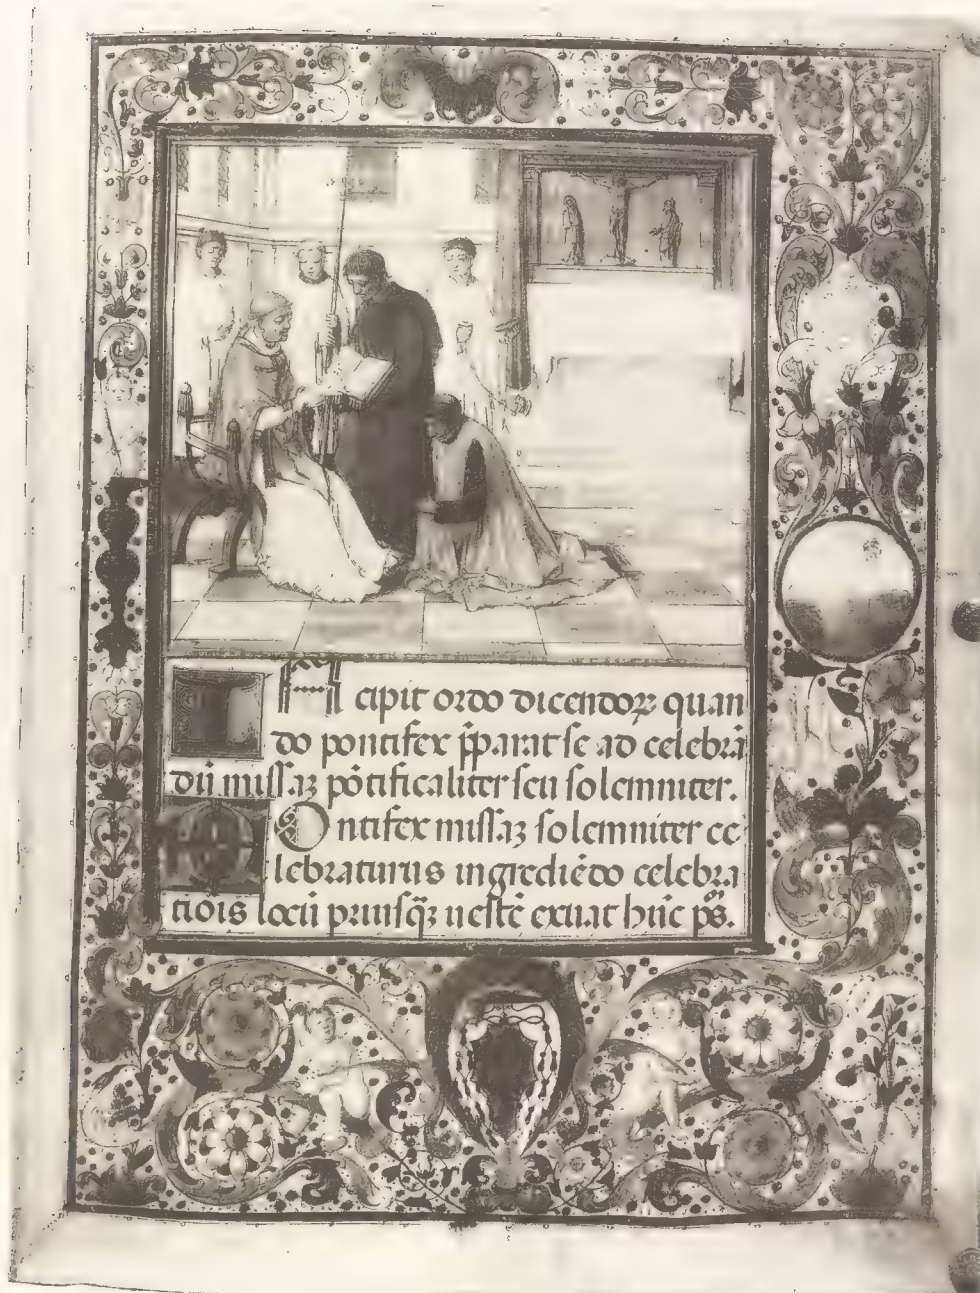 Incipit ordo dicendoꝝ quan
do pontifex p̄parat se ad celebrā
dū missaꝫ pōtificaliter seu solemniter.
Pontifex missaꝫ solemniter ce-
lebraturus ingrediēdo celebra
tiōis locū priusq̄ꝫ uestē exuat hūc ps̄.